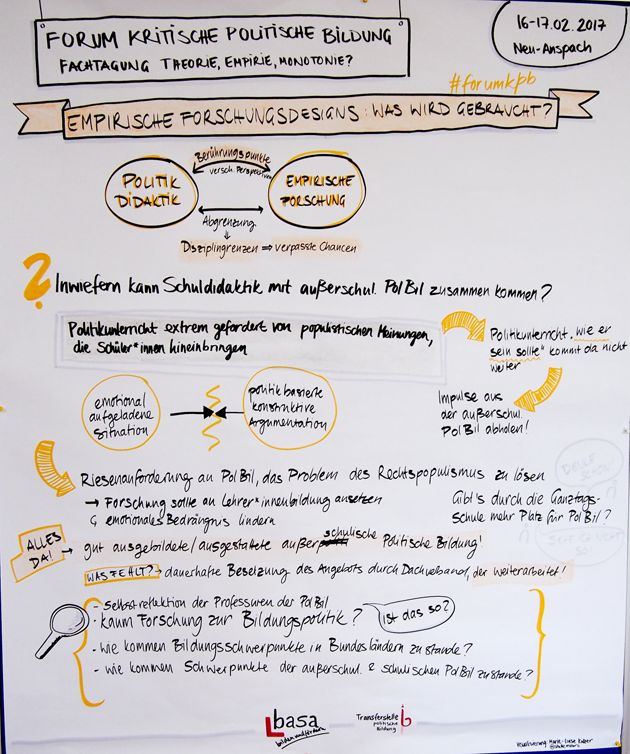 FORUM KRITISCHE POLITISCHE BILDUNG
FACHTAGUNG THEORIE, EMPIRIE, MONOTONIE?
16-17.02.2017
Neu-Anspach
#forumkpb
EMPIRISCHE FORSCHUNGSDESIGNS: WAS WIRD GEBRAUCHT?
POLITIK
DIDAKTIK
Berührungspunkte
versch. Perspektiven
EMPIRISCHE
FORSCHUNG
Abgrenzung
Disziplingrenzen ⇒ verpasste Chancen
? Inwiefern kann Schuldidaktik mit außerschul. PolBil zusammen kommen?
Politikunterricht extrem gefordert von populistischen Meinungen,
die Schüler*innen hineinbringen
Politikunterricht „wie er
sein sollte" kommt da nicht
weiter
Impulse aus
der außerschul.
PolBil abholen!
emotional
aufgeladene
Situation
politik basierte
konstruktive
Argumentation
Riesenanforderung an PolBil, das Problem des Rechtspopulismus zu lösen
→ Forschung sollte an Lehrer*innenbildung ansetzen
↳ emotionales Bedrängnis lindern
Gibt's durch die Ganztags-
Schule mehr Platz für PolBil?
ALLES
DA!
→ gut ausgebildete/ausgestaltete außerschulische Politische Bildung!
WAS FEHLT? → dauerhafte Besetzung des Angebots durch Dachverband, der weiterarbeitet!
- Selbstreflektion der Professuren der PolBil
· kaum Forschung zur Bildungspolitik?
ist das so?
- wie kommen Bildungsschwerpunkte in Bundesländern zustande?
- wie kommen Schwerpunkte der außerschul. & schulischen PolBil zustande?
basa
bilden und fördern
Transferstelle
politische
Bildung
Visualisierung: Marie-Luise